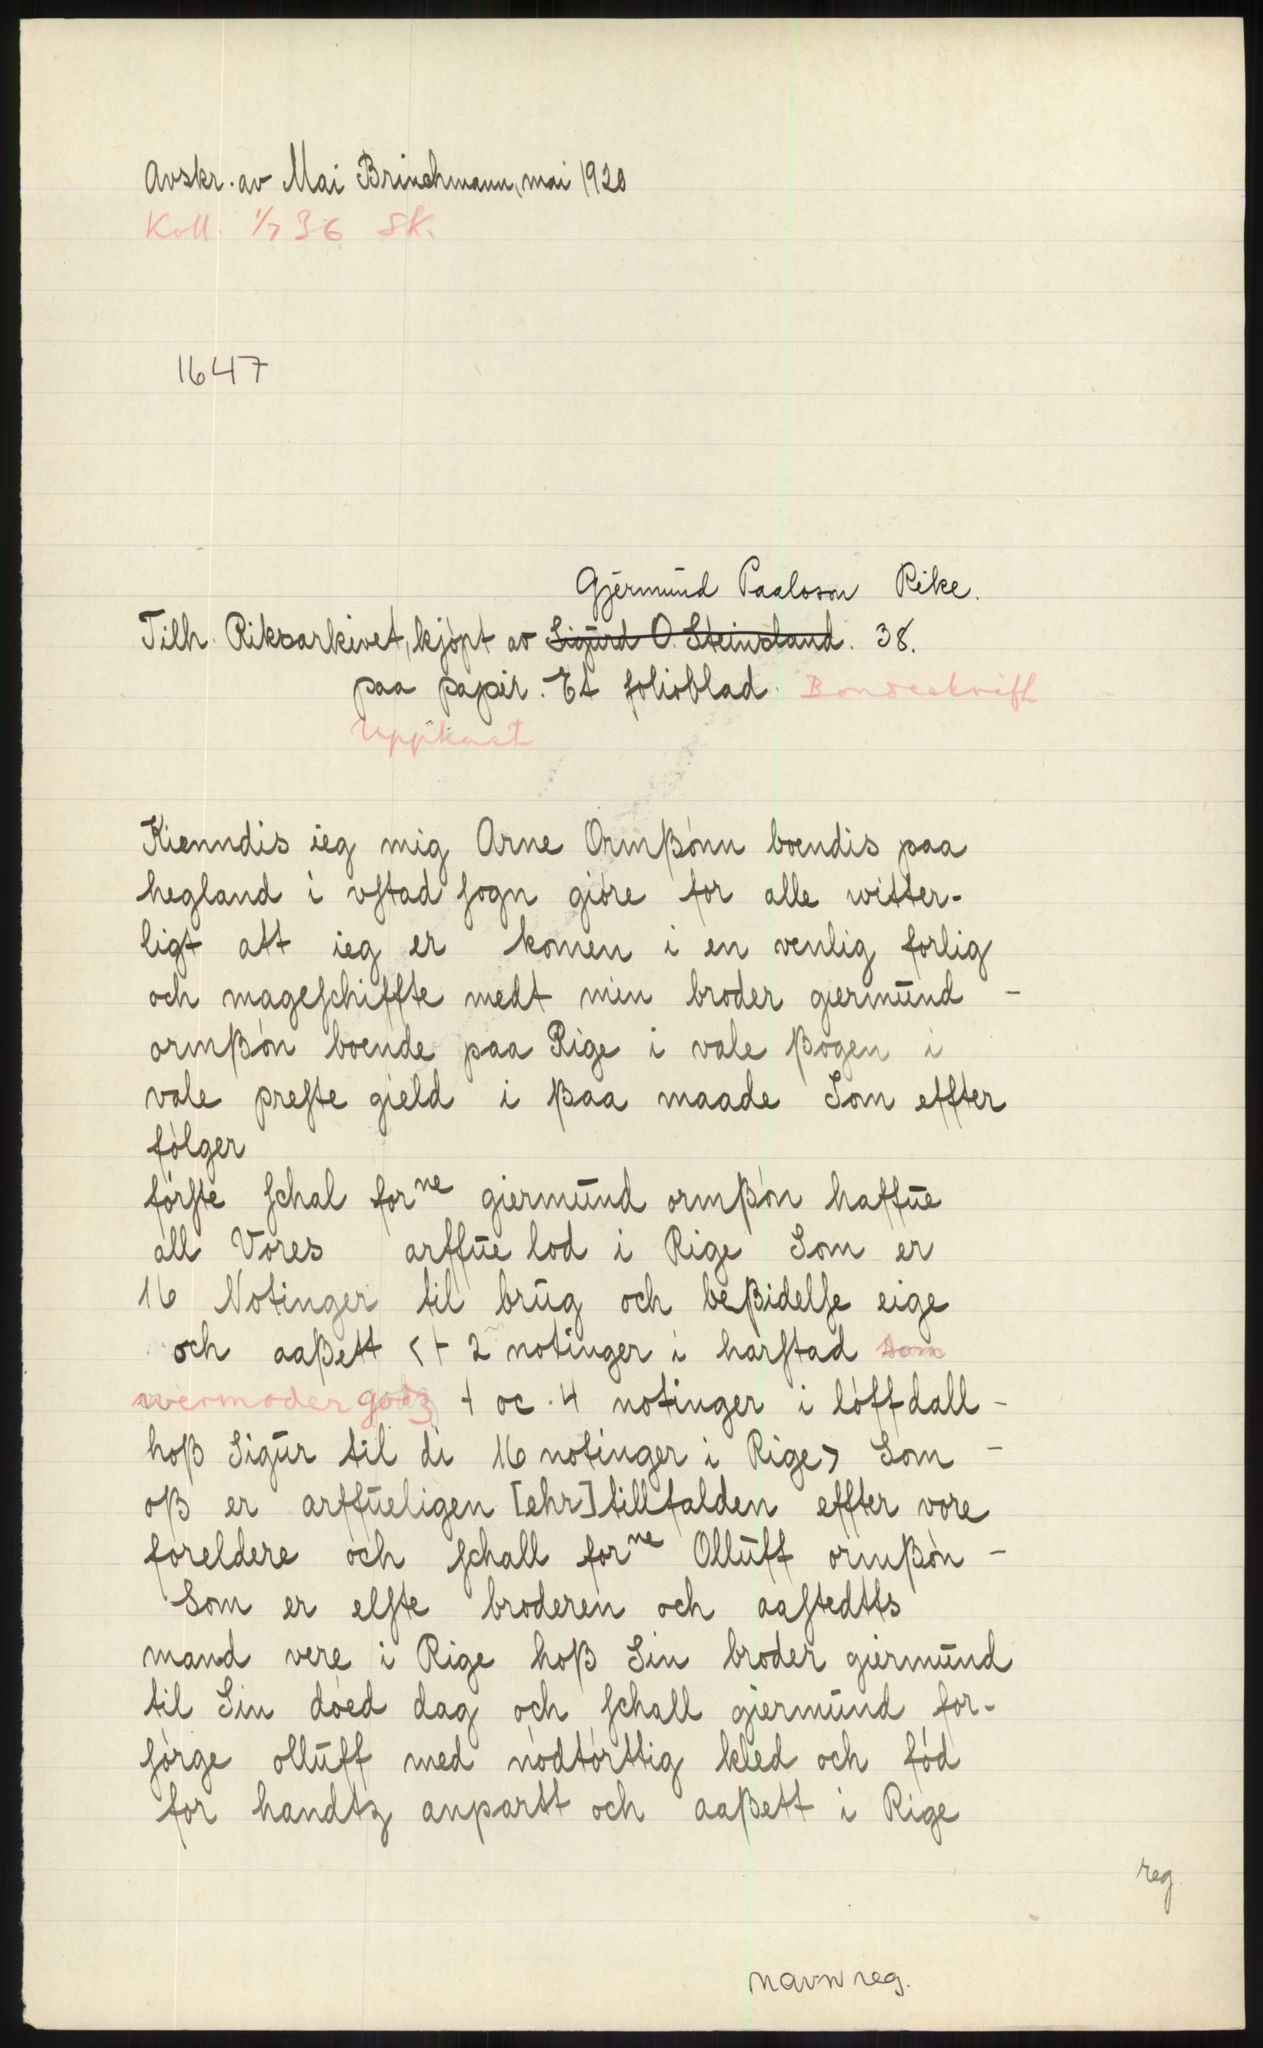 Avskr. av Mai Brinchmann, mai 1920
Koll. 1/7 36 SK.
1647
Gjermund Paalsson Rike.
Tilh. Riksarkivet, kjøpt av Sigurd O. Steinsland. 38.
paa papir. Et folioblad. Bondeskrift
Uppkast
Kienndis ieg mig Arne Ormßønn boendis paa
hegland i vstad sogn giøre for alle witter-
ligt att ieg er komen i en venlig forlig
och mageschiffte medt min broder giermund -
ormßøn boende paa Rige i vale ßogen i
vale preste gield i ßaa maade Som effter
følger
første schal forne giermund ormßøn haffue
all Vores arffue lod i Rige Som er
16 Notinger til brug och beßidelse eige
och aaßett <+ 2 notinger i harstad som
wermoder godz + oc 4 notinger i løffdall -
hoß Sigur til di 16 notinger i Rige> Som -
oß er arffueligen [ehr] tillfalden effter vore
foreldere och schall forne Olluff ormßøn -
Som er elste broderen och aastedtts
mand vere i Rige hoß Sin broder giermund
til Sin døed dag och schall giermund for-
sørge olluff med nødtørttig kled och fød
for handtz anpartt och aaßett i Rige
reg.
navnreg.